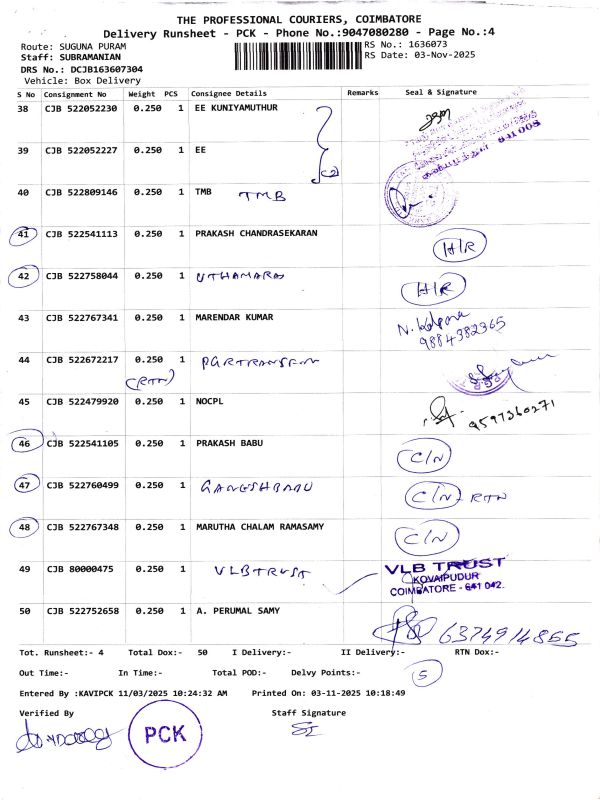 THE PROFESSIONAL COURIERS, COIMBATORE
Delivery Runsheet - PCK - Phone No.:9047080280 - Page No.:4
Route: SUGUNA PURAM
RS No.: 1636073
Staff: SUBRAMANIAN
RS Date: 03-Nov-2025
DRS No.: DCJB163607304
Vehicle: Box Delivery
S No Consignment No Weight PCS Consignee Details Remarks Seal & Signature
38 CJB 522052230 0.250 1 EE KUNIYAMUTHUR
39 CJB 522052227 0.250 1 EE
40 CJB 522809146 0.250 1 TMB TMB
41 CJB 522541113 0.250 1 PRAKASH CHANDRASEKARAN H/R
42 CJB 522758044 0.250 1 UTHAMARAJ H/R
43 CJB 522767341 0.250 1 MARENDAR KUMAR N. Kalpana
9884382365
44 CJB 522672217 0.250 1
(RTN)
45 CJB 522479920 0.250 1 NOCPL 9597360271
46 CJB 522541105 0.250 1 PRAKASH BABU C/N
47 CJB 522760499 0.250 1 GANESHBABU C/N - RTN
48 CJB 522767348 0.250 1 MARUTHA CHALAM RAMASAMY C/N
49 CJB 80000475 0.250 1 VLBTRUST VLB TRUST
KOVAIPUDUR
COIMBATORE - 641 042.
50 CJB 522752658 0.250 1 A. PERUMAL SAMY 6374914855
Tot. Runsheet:- 4 Total Dox:- 50 I Delivery:- II Delivery:- RTN Dox:-
Out Time:- In Time:- Total POD:- Delvy Points:- 5
Entered By :KAVIPCK 11/03/2025 10:24:32 AM Printed On: 03-11-2025 10:18:49
Verified By Staff Signature
PCK